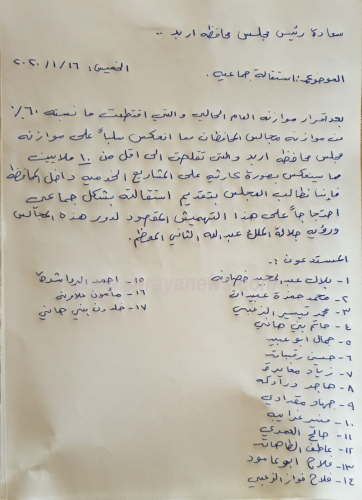 سعادة رئيس مجلس محافظة اربد ..
الخميس: ٢٠٢٠/١/١٦
الموضوع: استقالة جماعية.
بعد اقرار موازنة العام الحالي والتي اقتطعت ما نسبته ٦٠٪
من موازنة مجالس المحافظات مما انعكس سلباً على موازنة
مجلس محافظة اربد والتي تقلصت الى اقل من ١٠ ملايين
مما سينعكس بصورة كارثية على المشاريع الخدمية داخل المحافظة
فإننا نطالب المجلس بتقديم استقالته بشكل جماعي
احتجاجاً على هذا التهميش المقصود لدور هذه المجالس
ورؤية جلالة الملك عبدالله الثاني المعظم.
المستدعون :-
١- بلال عبدالمجيد خصاونه
٢- محمد حمزة عبيدات
٣- محمد تيسير الزعبي
٤- حاتم بني هاني
٥- جمال ابو عبيد
٦- حسين
٧- زياد مغايره
٨- ماجد درادكه
٩- جهاد مقدادي
١٠- منير غرايبه
١١- صالح العمري
١٢- عاطف الطاحات
١٣- فلاح ابوعامود
١٤- فلاح فواز الزعبي
١٥- احمد الرواشدة
١٦- مأمون علاونة
١٧- خلدون بني هاني
sarayanews.com